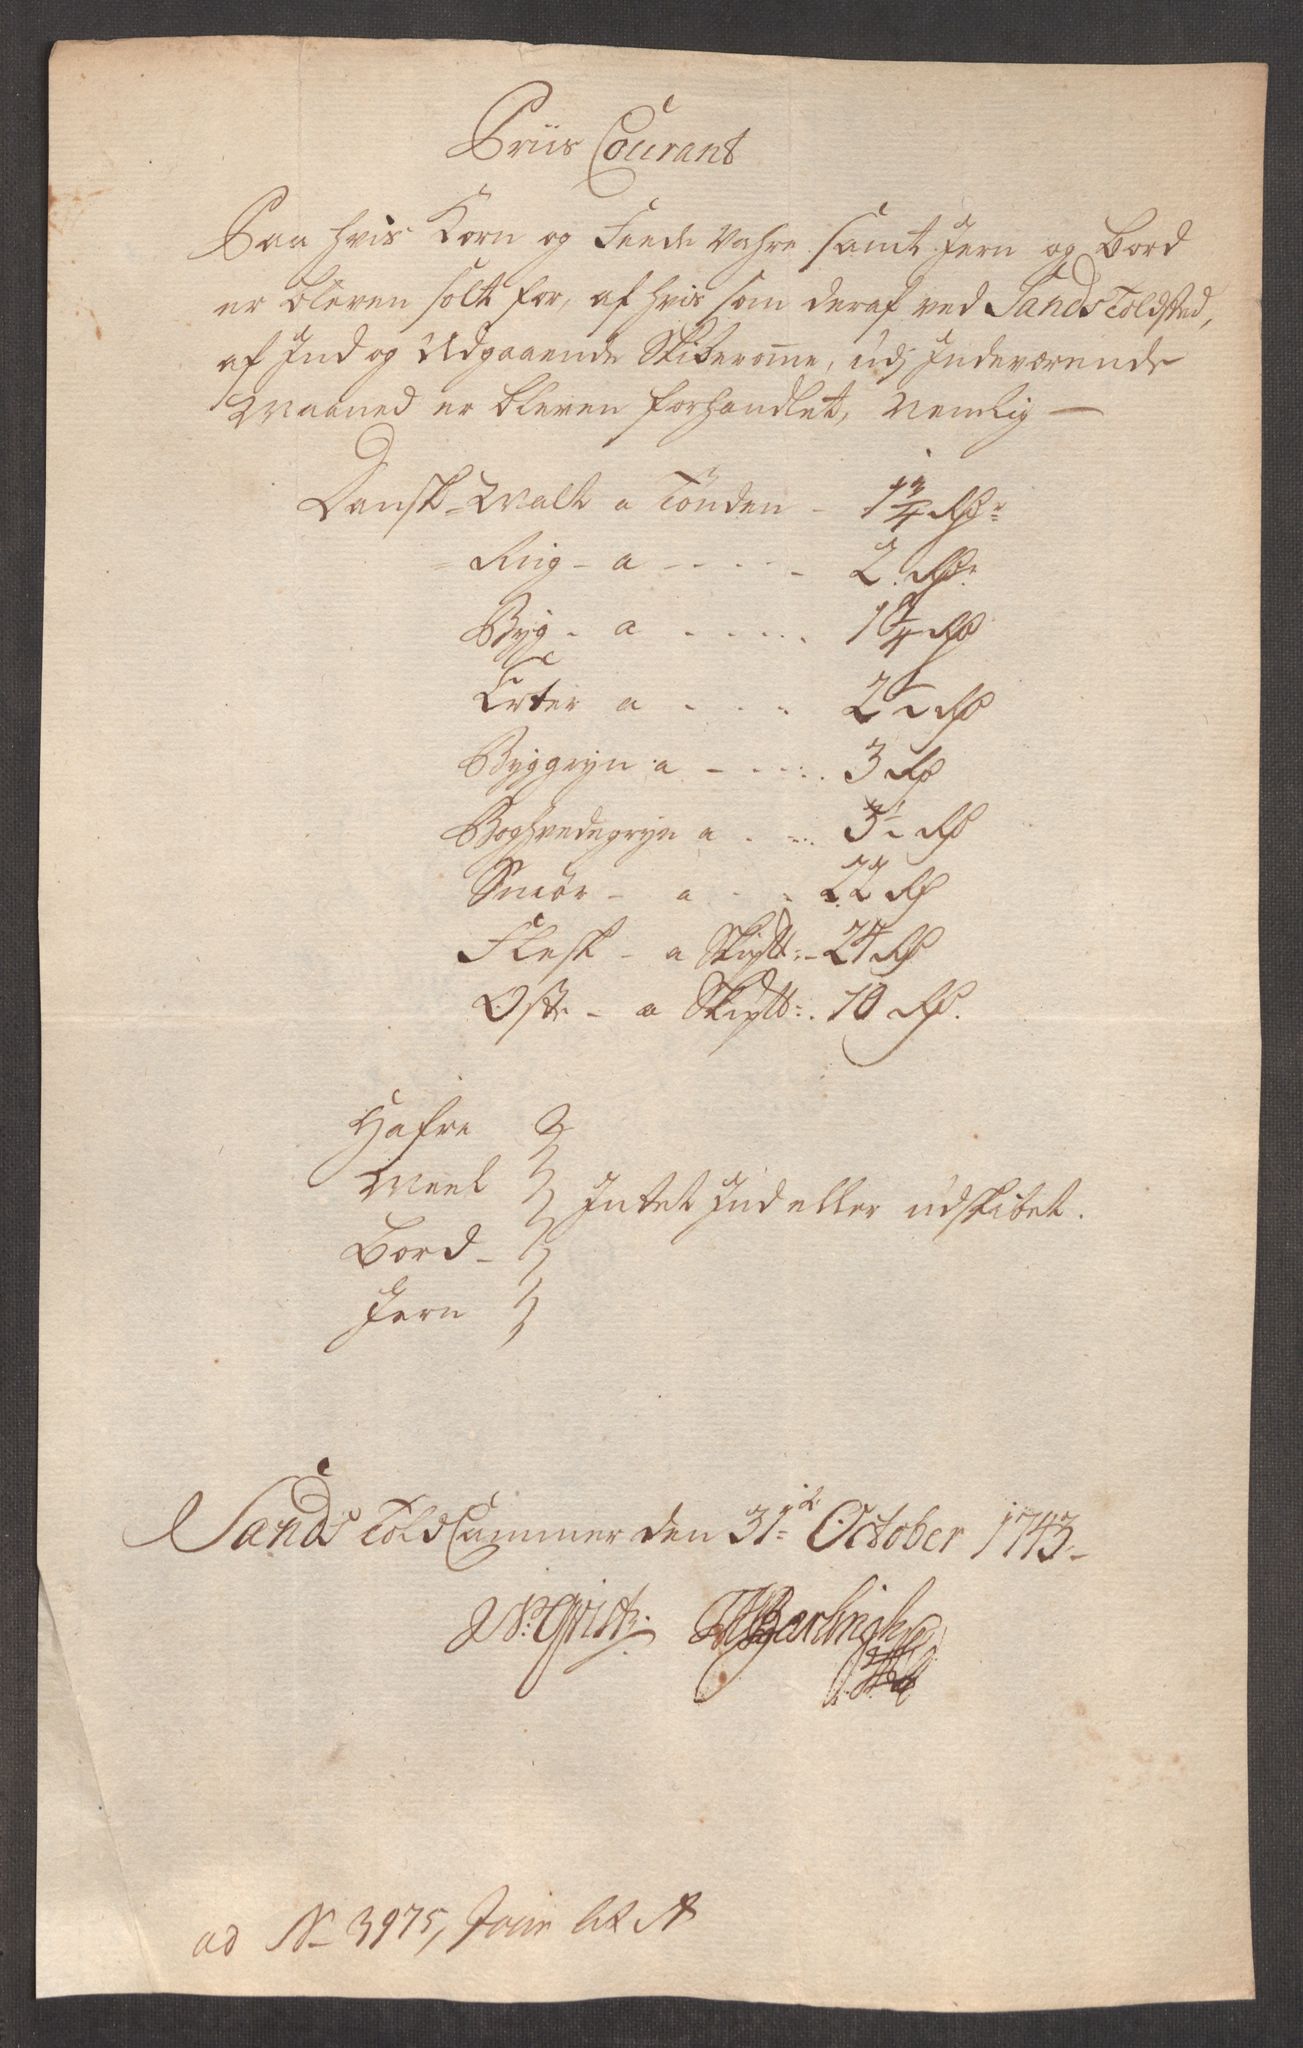 Priis Courant
Paa hvis Korn og Feede Vahre samt Jern og Bord
er bleven solt for, af hvis som deraf ved Sands Toldsted,
af Ind og Udgaaende Skiberome, udj Indeværende
Maaned er bleven forhandlet, Nemlig —
Dansk = Malt a Tönden - 1 3/4 Rdr
Rug - a - - - - - 2 Rdr
Byg - a - - - - - 1 3/4 Rd
Erter a - - - 2 1/2 Rd
Byggryn a - - - - 3 Rd
Boghvedegryn a - - - 3 1/2 Rd
Smör - a - - 22 Rd
Flesk - a Skiptt: - 24 Rd
Oste - a Skiptt: 10 Rd.
Hafre
Meel
Intet Ind eller udskibet.
Bord -
Jern
Sands Told Cammer den 31te October 1743.
ad No 3975, A